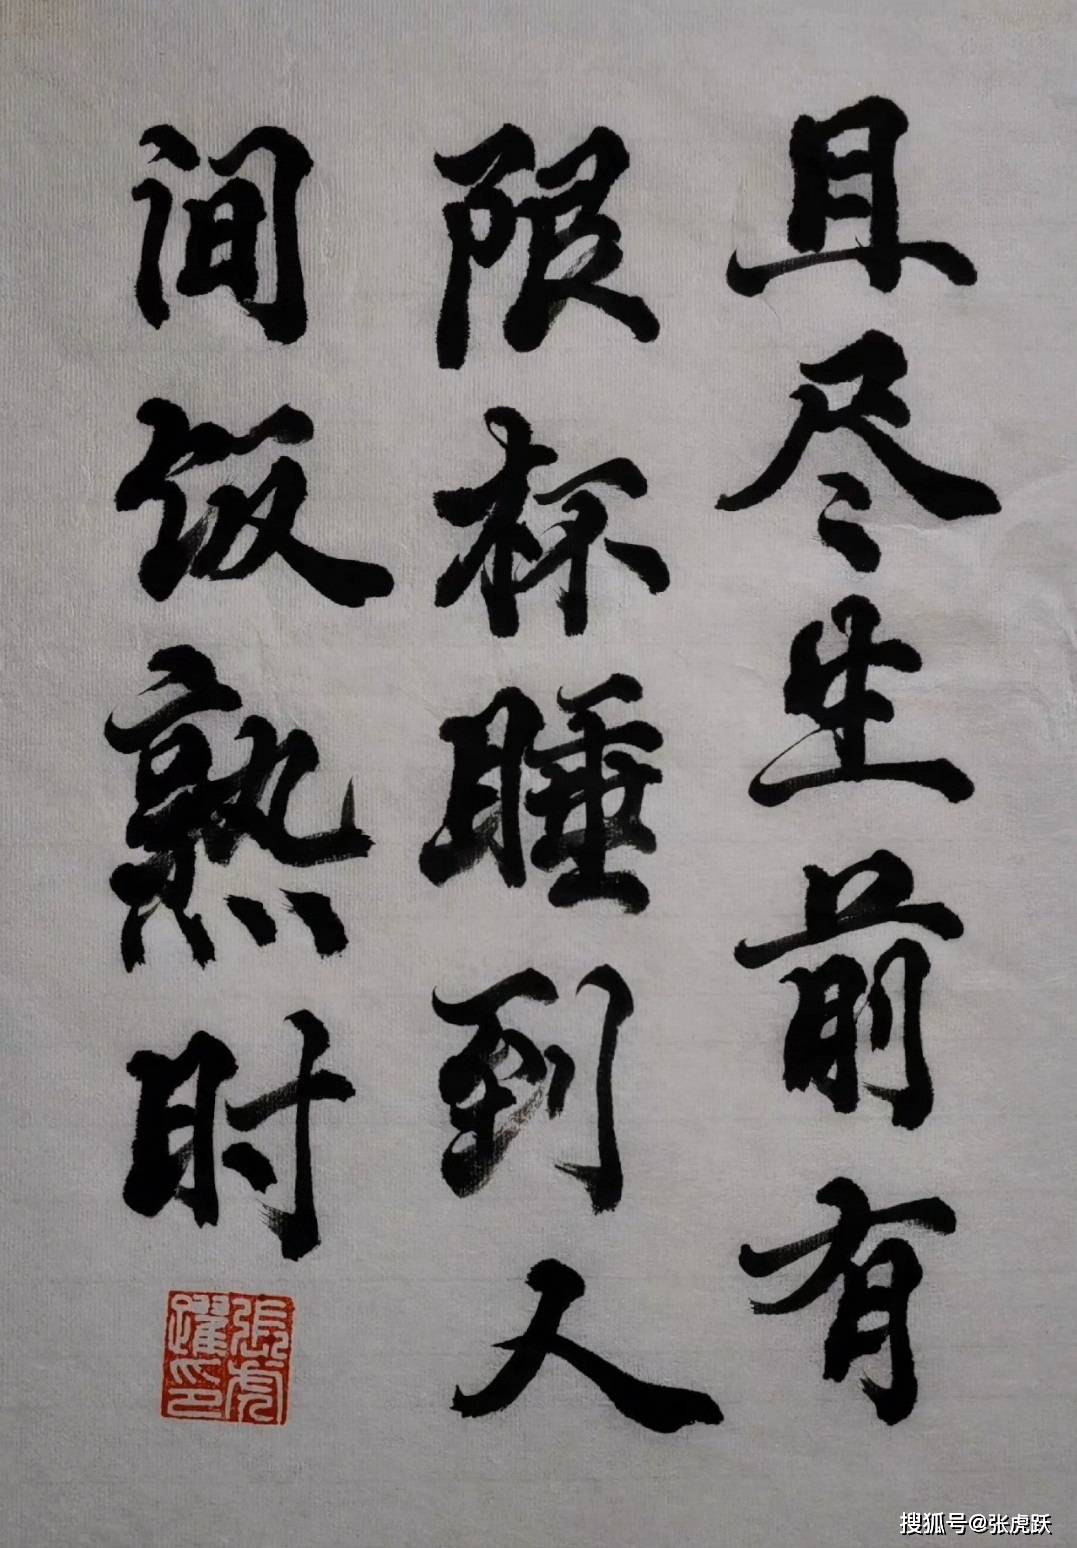 且尽生前有
限杯睡到人
间饭熟时
張虎
躍印
搜狐号@张虎跃